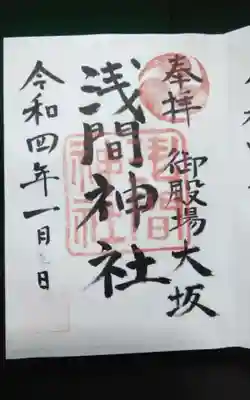 奉拝
御殿場大坂
浅間神社
浅間
神社
令和四年一月 日